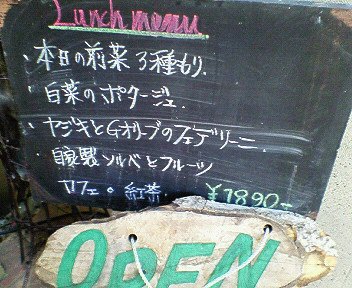 Lunch menu
・本日の前菜3種もり.
・白菜のポタージュ
・ヤリイカとGオリーブのフェデリーニ
・自家製ソルベとフルーツ
カフェ・紅茶 ¥1890-
OPEN